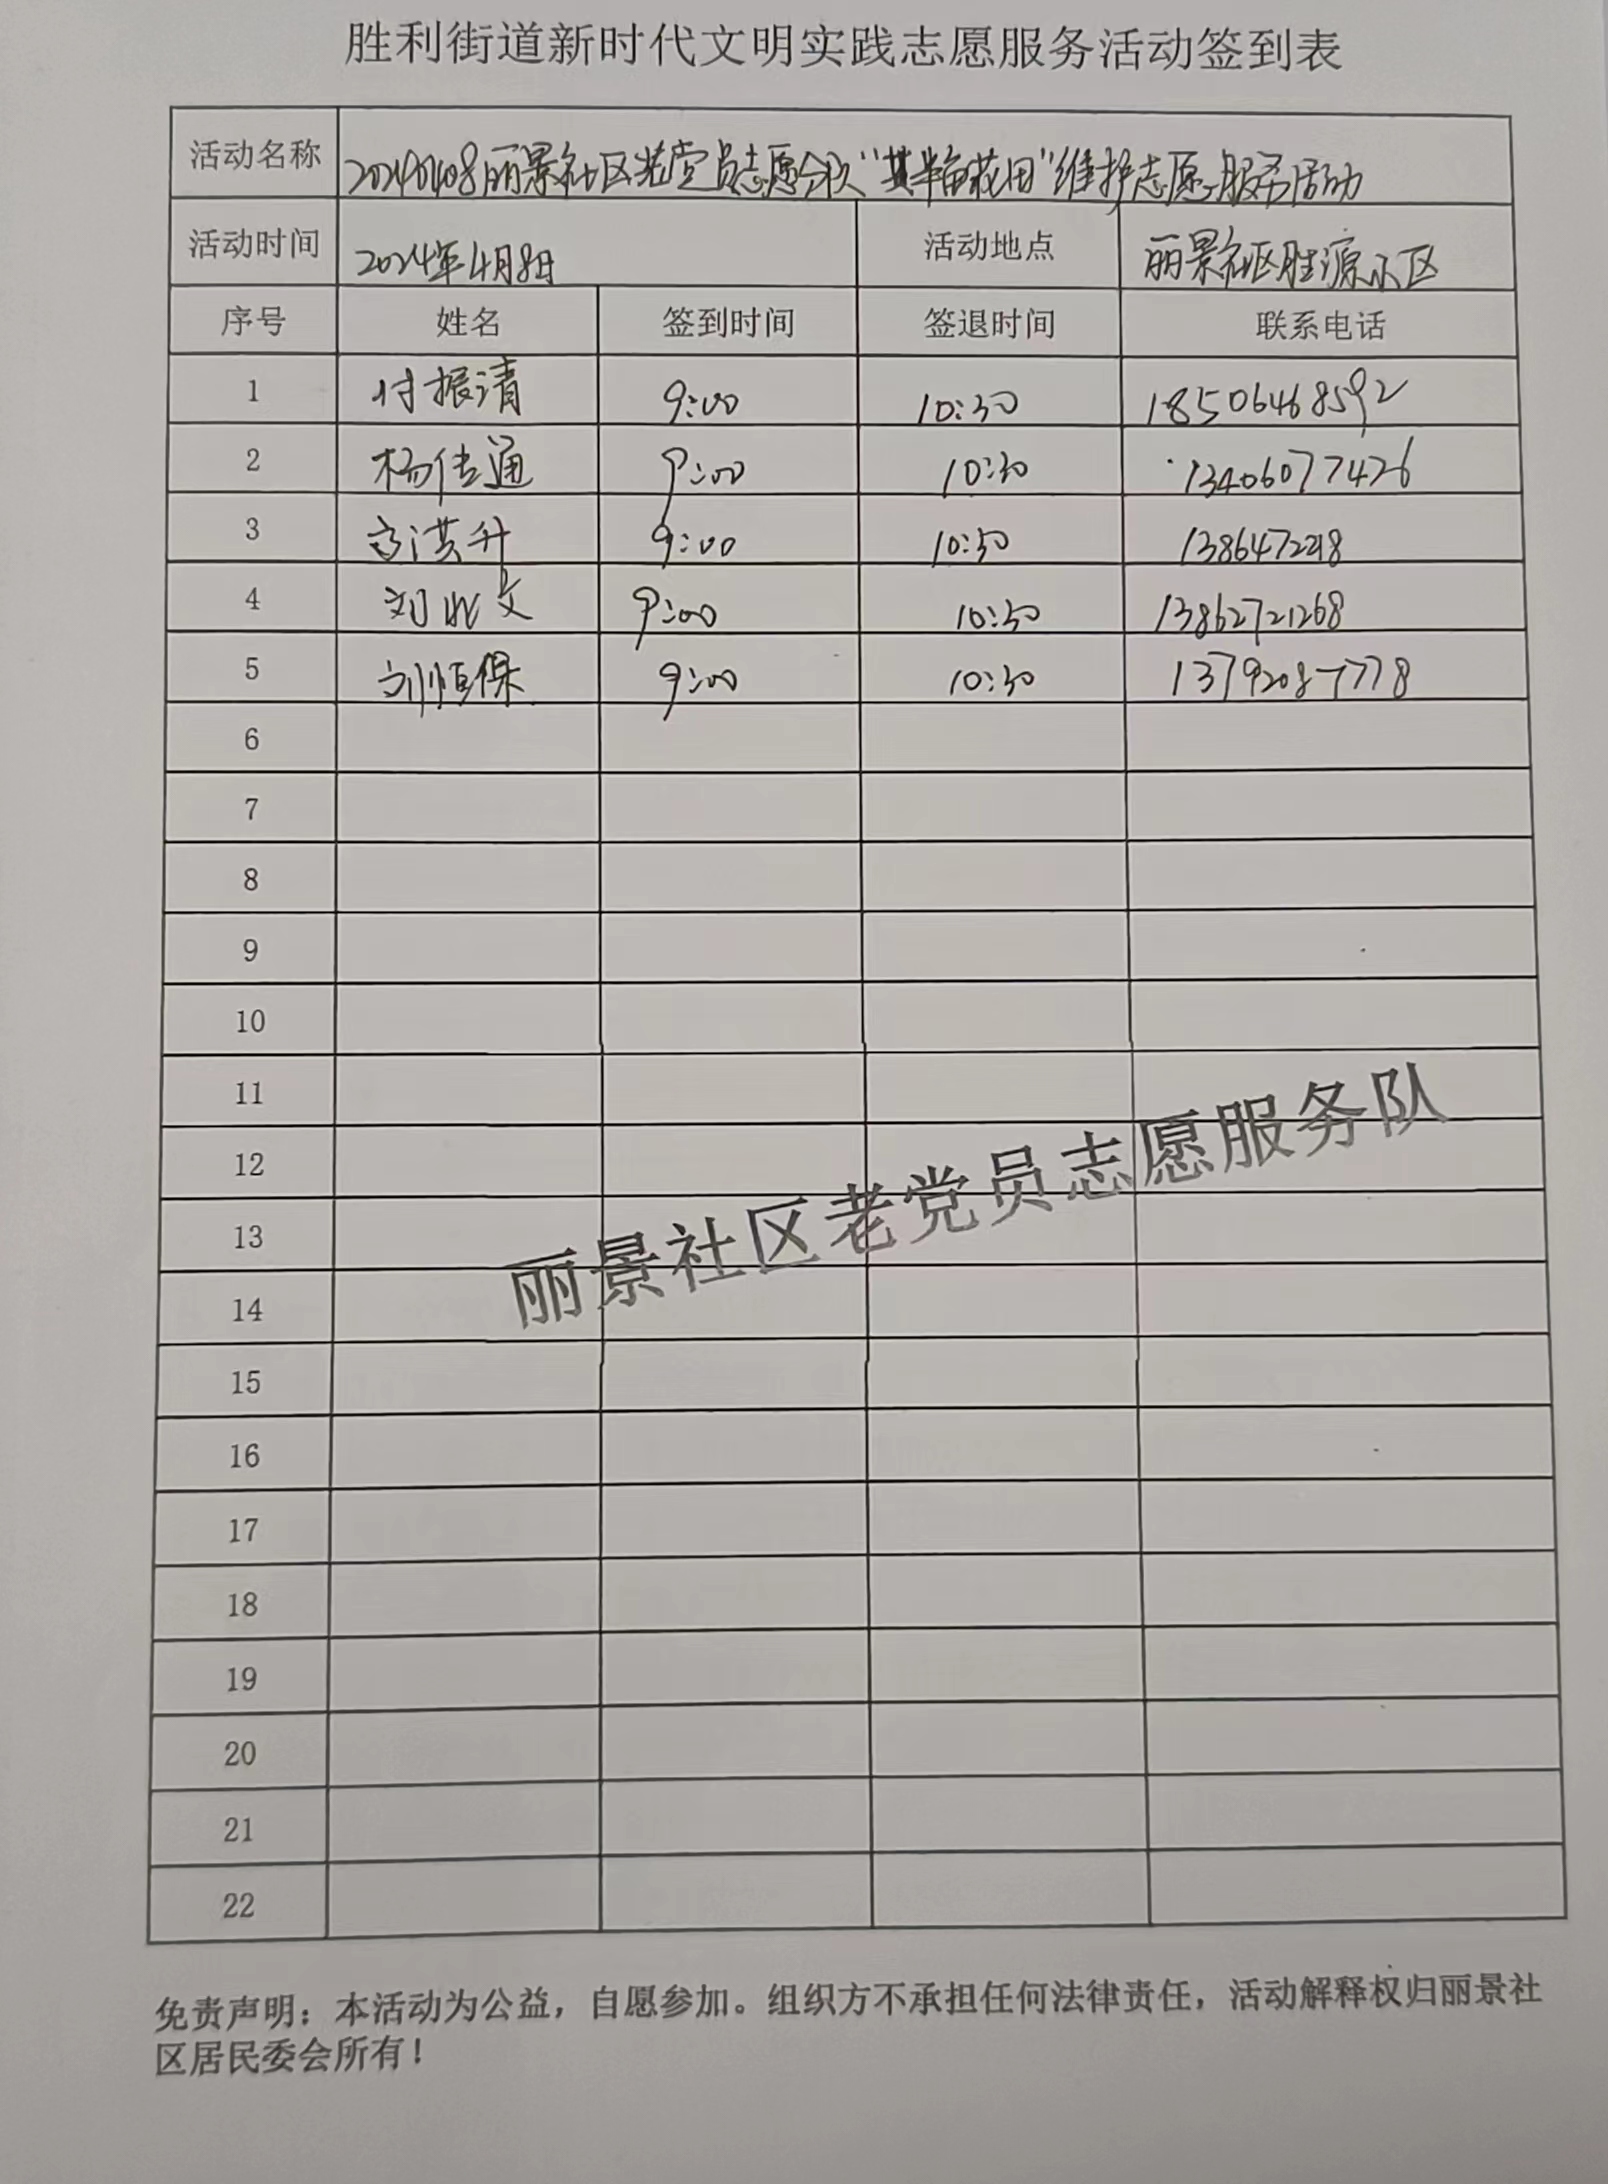 胜利街道新时代文明实践志愿服务活动签到表
活动名称 20240408丽景社区老党员志愿分队“其半亩花田”维护志愿服务活动
活动时间 2024年4月8日 活动地点 丽景社区胜源小区
序号 姓名 签到时间 签退时间 联系电话
1 付振清 9:00 10:30 18506468592
2 杨佳通 9:00 10:30 13406077426
3 高洪升 9:00 10:30
4 刘 文 9:00 10:30 13862721268
5 刘恒保 9:00 10:30 13792087778
6
7
8
9
10
11
12
13
14
15
16
17
18
19
20
21
22
丽景社区老党员志愿服务队
免责声明：本活动为公益，自愿参加。组织方不承担任何法律责任，活动解释权归丽景社
区居民委会所有！